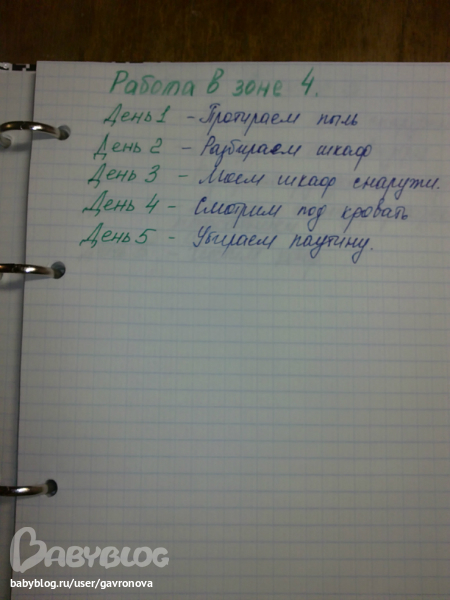 Работа в зоне 4.
День 1 - Протираем пыль
День 2 - Разбираем шкаф
День 3 - Моем шкаф снаружи.
День 4 - Смотрим под кровать
День 5 - Убираем паутину.
BABYBLOG
babyblog.ru/user/gavronova